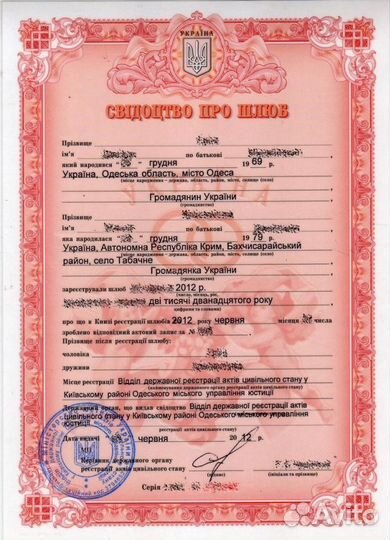 УКРАЇНА
СВІДОЦТВО ПРО ШЛЮБ
Прізвище
ім'я по батькові
який народився " " грудня 1969 р.
Україна, Одеська область, місто Одеса
(місце народження – держава, область, район, місто, селище (село)
Громадянин України
(громадянство)
Прізвище
ім'я по батькові
яка народилась " " грудня 1979 р.
Україна, Автономна Республіка Крим, Бахчисарайський
(місце народження – держава, область, район, місто, селище (село)
район, село Табачне
Громадянка України
(громадянство)
зареєстрували шлюб 2012 р.
(число, місяць, рік)
дві тисячі дванадцятого року
(цифрами та словами)
про що в Книзі реєстрації шлюбів 2012 року червня місяця числа
зроблено відповідний актовий запис за №
Прізвище після реєстрації шлюбу:
чоловіка
дружини
Місце реєстрації Відділ державної реєстрації актів цивільного стану у
(найменування державного органу реєстрації актів цивільного стану)
Київському районі Одеського міського управління юстиції
Державний орган, що видав свідоцтво Відділ державної реєстрації актів
цивільного стану у Київському районі Одеського міського управління
юстиції
реєстрації актів цивільного стану)
Дата видачі " " червня 2012 р.
М.П.
Керівник державного органу
реєстрації актів цивільного стану
(підпис) (ініціали та прізвище)
Серія №
Avito